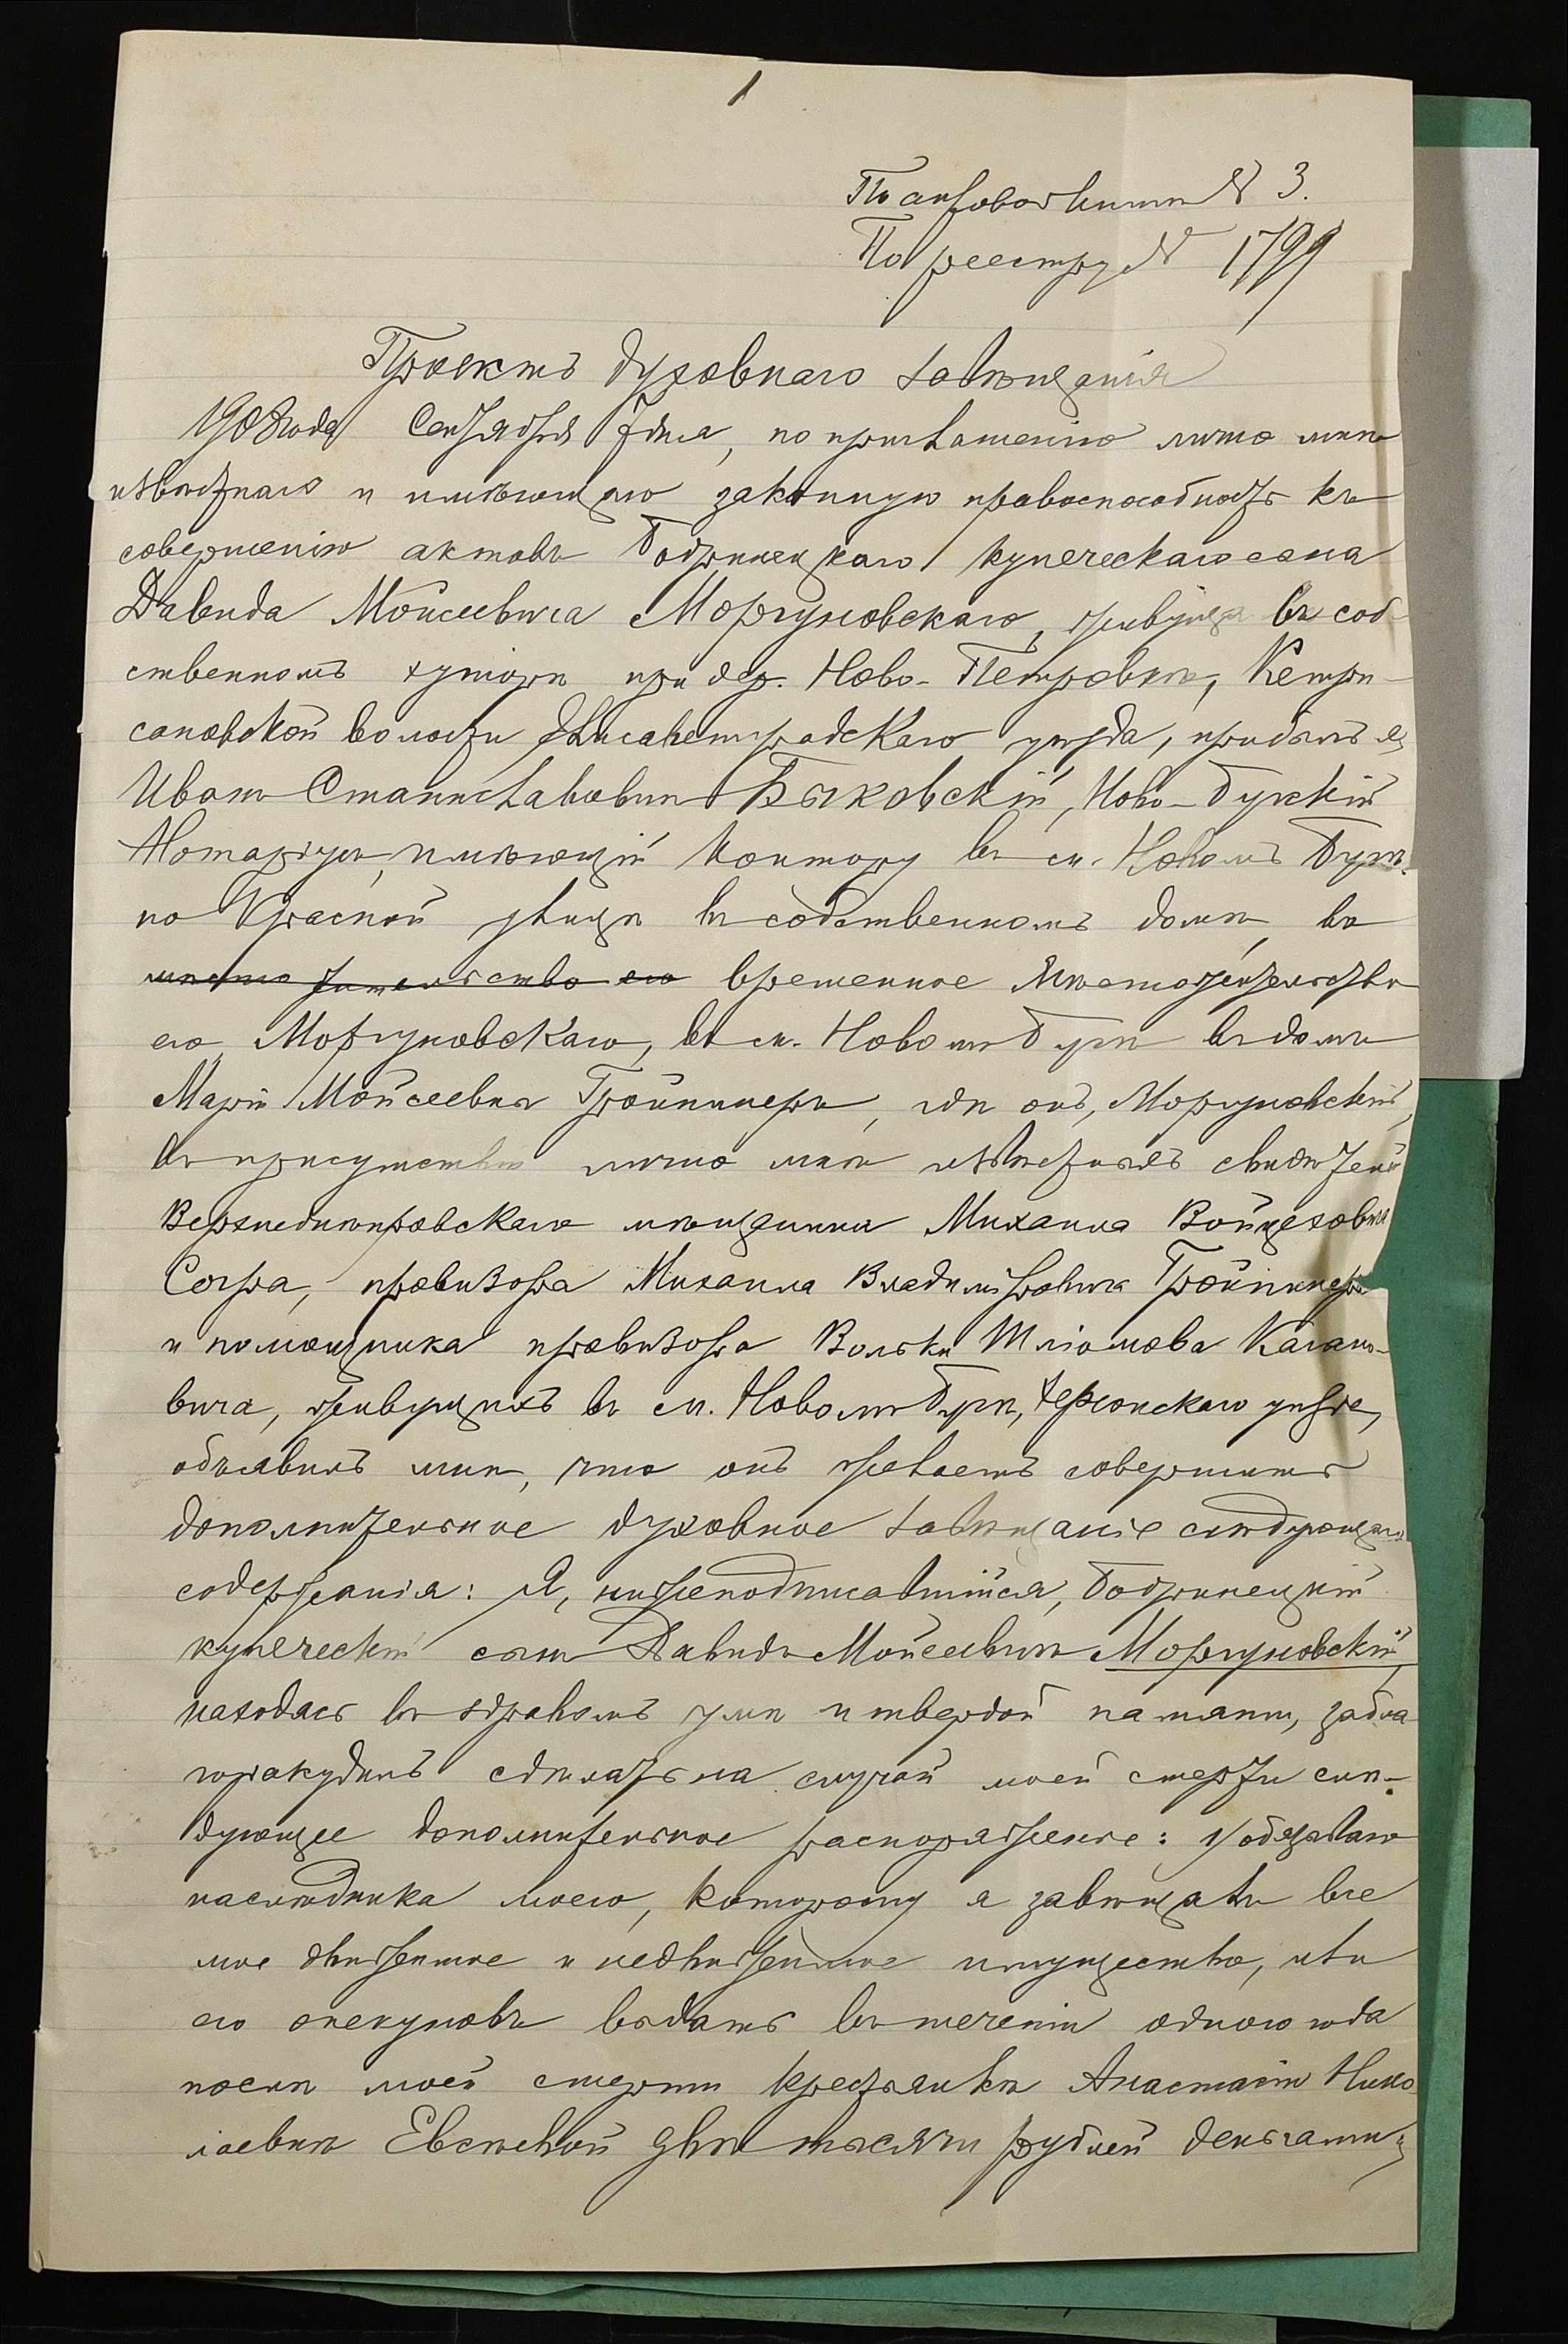 По актовой книге № 3.
По реестру № 1799
Проектъ духовнаго завѣщанія
1908 года Сентября 7 дня, по приглашенію лично мнѣ
извѣстнаго и имѣющаго законную правоспособность къ
совершенію актовъ Бобринецкаго купеческаго сына
Давида Мойсеевича Моргуновскаго, живущаго въ соб-
ственномъ хуторѣ при дер. Ново-Петровкѣ, Кетри-
сановской волости Елисаветградскаго уѣзда, прибылъ я,
Иванъ Станиславовичъ Быковскій, Ново-Бугскій
Нотаріусъ, имѣющій контору въ м. Новомъ Бугѣ,
по Красной улицѣ въ собственномъ домѣ, въ
мѣсто жительство его временное мѣстожительство
его Моргуновскаго, въ м. Новомъ Бугѣ въ домѣ
Маріи Мойсеевны Тройницеръ, гдѣ онъ, Моргуновскій,
въ присутствіи лично мнѣ извѣстныхъ свидѣтелей
Верхнеднѣпровскаго мѣщанина Михаила Войцеховича
провизора Михаила Владиміровича Тройницера
и помощника провизора Вольки Шліомова Кагано-
вича, живущихъ въ м. Новомъ Бугѣ, Херсонскаго уѣзда,
объявилъ мнѣ, что онъ желаетъ совершить
дополнительное духовное завѣщаніе слѣдующаго
содержанія: Я, нижеподписавшійся, Бобринецкій
купеческій сынъ Давидъ Мойсеевичъ Моргуновскій,
находясь въ здравомъ умѣ и твердой памяти, забла-
горазсудилъ сдѣлать на случай моей смерти слѣ-
дующее дополнительное распоряженіе: 1/ обязываю
наслѣдника моего, которому я завѣщалъ все
мое движимое и недвижимое имущество, или
его опекуновъ выдать въ теченіи одного года
послѣ моей смерти крестьянкѣ Анастасіи Нико-
лаевнѣ двѣ тысячи рублей деньгами;